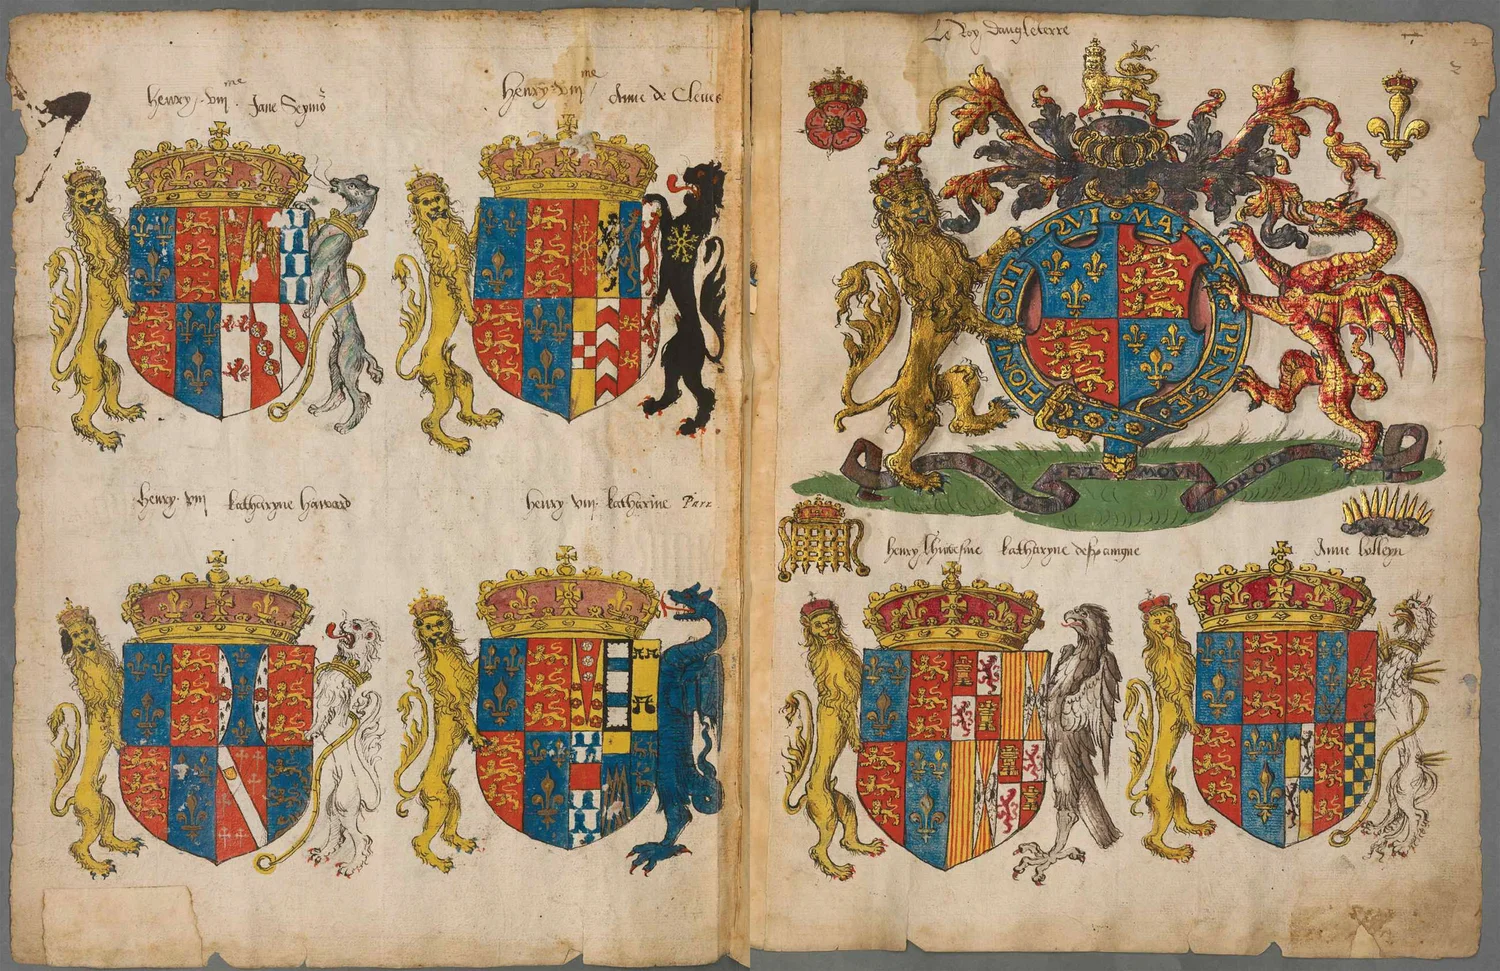 Henry . viij me . Jane Seymo
Henry viij me Anne de Cleues
Henry . viij Katharyne Haward
Henry viij . Katharine Parr
Le Roy dangleterre
HONI SOIT QVI MAL Y PENSE
DIEV ET MOVN DROIT
Henry Katharyne despaingne
Anne bolleyn